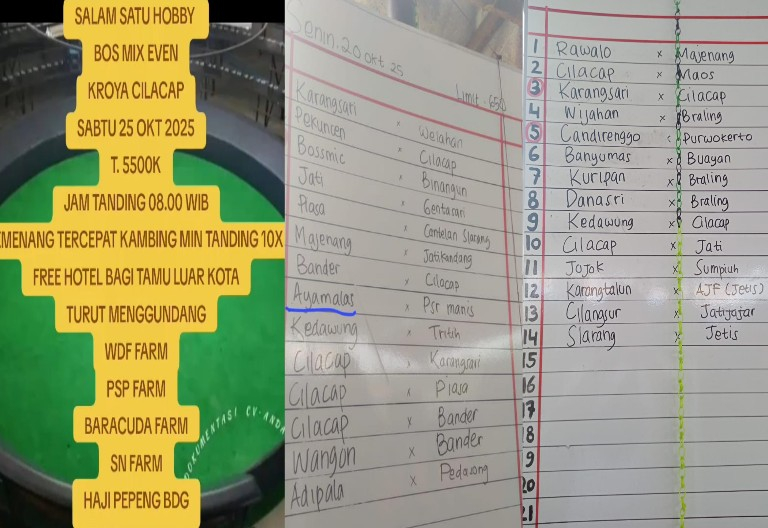 SALAM SATU HOBBY
BOS MIX EVEN
KROYA CILACAP
SABTU 25 OKT 2025
T. 5500K
JAM TANDING 08.00 WIB
MENANG TERCEPAT KAMBING MIN TANDING 10X
FREE HOTEL BAGI TAMU LUAR KOTA
TURUT MENGGUNDANG
WDF FARM
PSP FARM
BARACUDA FARM
SN FARM
HAJI PEPENG BDG
DOKUMENTASI CV-ANDA
Senin, 20 okt 25
Limit : 650
Karangsari x Welahan
Pekuncen x Cilacap
Bossmic x Binangun
Jati x Gentasari
Plasa x Cantelan Slarang
Majenang x Jatikandang
Bander x Cilacap
Ayamalas x Psr manis
Kedawung x Tritih
Cilacap x Karangsari
Cilacap x Plasa
Cilacap x Bander
Wangon x Bander
Adipala x Pedasong
1 Rawalo x Majenang
2 Cilacap x Maos
3 Karangsari x Cilacap
4 Wijahan x Braling
5 Candirenggo x Purwokerto
6 Banyumas x Buayan
7 Kuripan x Braling
8 Danasri x Braling
9 Kedawung x Cilacap
10 Cilacap x Jati
11 Jojok x Sumpiuh
12 Karangtalun x AJF (Jetis)
13 Cilangsur x Jatijajar
14 Slarang x Jetis
15
16
17
18
19
20
21